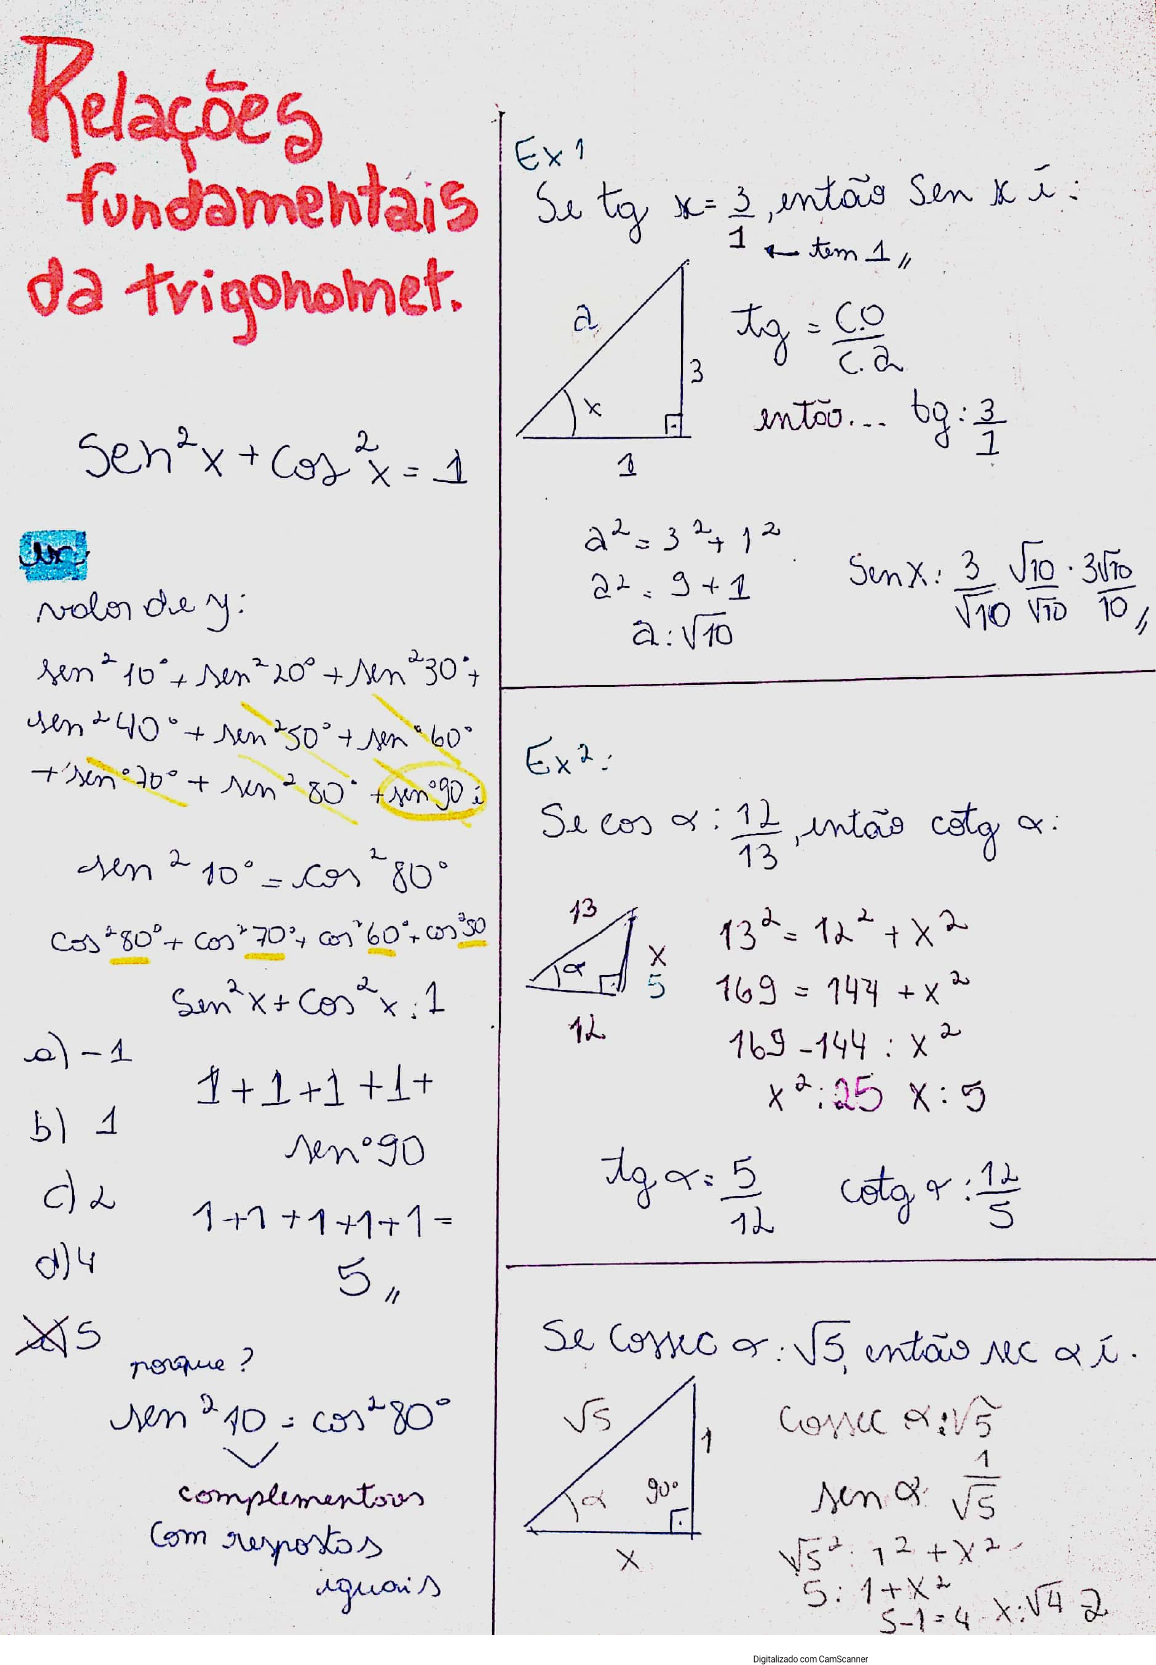 Relações
fundamentais
da trigonomet.
Sen²x + cos²x = 1
valor de y:
sen²10° + sen²20° + sen²30° +
sen²40° + sen²50° + sen°60°
+ sen°70° + sen²80° + sen°90 é
sen²10° = cos²80°
cos²80° + cos²70° + cos²60° + cos²50
Sen²x + cos²x : 1
a) -1
1 + 1 + 1 + 1 +
b) 1
sen°90
c) 2
1 + 1 + 1 + 1 + 1 =
d) 4
5 //
5
porque?
sen²10 = cos²80°
complementares
com respostas
iguais
Ex 1
Se tg x = 3/1, então Sen x é:
← tem 1 //
a
3
x
1
tg = C.O/C.a
então... tg: 3/1
a² = 3² + 1²
a² = 9 + 1
a: √10
Sen x: 3/√10 √10/√10 · 3√10/10 //
Ex 2:
Se cos α: 12/13, então cotg α:
13
α
x
5
12
13² = 12² + x²
169 = 144 + x²
169 - 144 : x²
x²: 25 x: 5
tg α = 5/12 cotg α: 12/5
Se Cossec α: √5, então sec α é.
√5
1
α
90°
x
Cossec α: √5
sen α: 1/√5
√5²: 1² + x²
5: 1 + x²
5-1 = 4 x: √4 2
Digitalizado com CamScanner